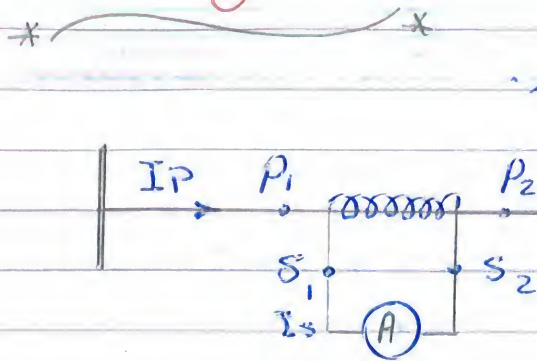 IP P1 P2
S1 S2
Is A